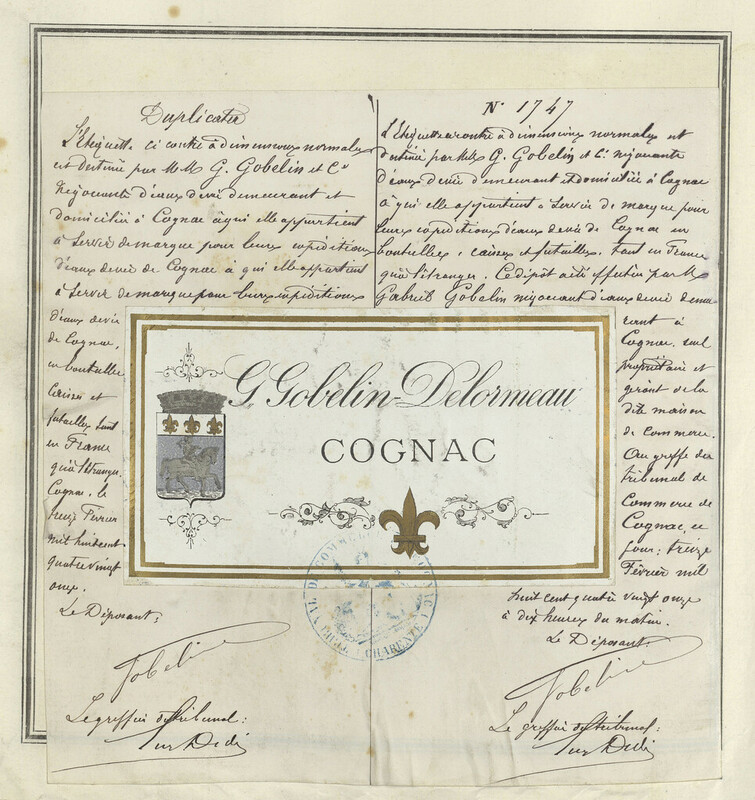 Duplicata
L'Etiquette ci contre à dimensions normales
est destinée par M.M. G. Gobelin et Cie
Négociants d'eaux devie demeurant et
domicilié à Cognac à qui elle appartient
à servir de marque pour leurs expéditions
d'eaux devie de Cognac à qui elle appartient
à servir de marque pour leurs expéditions
d'eaux devie
de Cognac,
en bouteilles
Caisses et
futailles tant
en France
qu'à l'étranger.
Cognac, le
treize Février
mil huit cent
quatre vingt
onze.
Le Déposant:
Gobelin
Le greffier du tribunal:
N° 1747
L'Etiquette ci contre à dimensions normales est
destinée par MM. G. Gobelin et Cie négociants
d'eaux devie demeurant et domicilié à Cognac
à qui elle appartient à servir de marque pour
leurs expéditions d'eaux devie de Cognac en
bouteilles, caisses et futailles, tant en France
qu'à l'étranger. Ce dépôt a été effectué par M.
Gabriel Gobelin négociant d'eaux devie demeu
rant à
Cognac, seul
propriétaire et
gérant de la
dite maison
de commerce.
Au greffe du
tribunal de
Commerce de
Cognac, ce
jour: treize
Février mil
huit cent quatre vingt onze
à dix heures du matin.
Le Déposant:
Gobelin
Le greffier du tribunal:
G. Gobelin-Delormeau
COGNAC
DE COMMERCE
CHARENTE